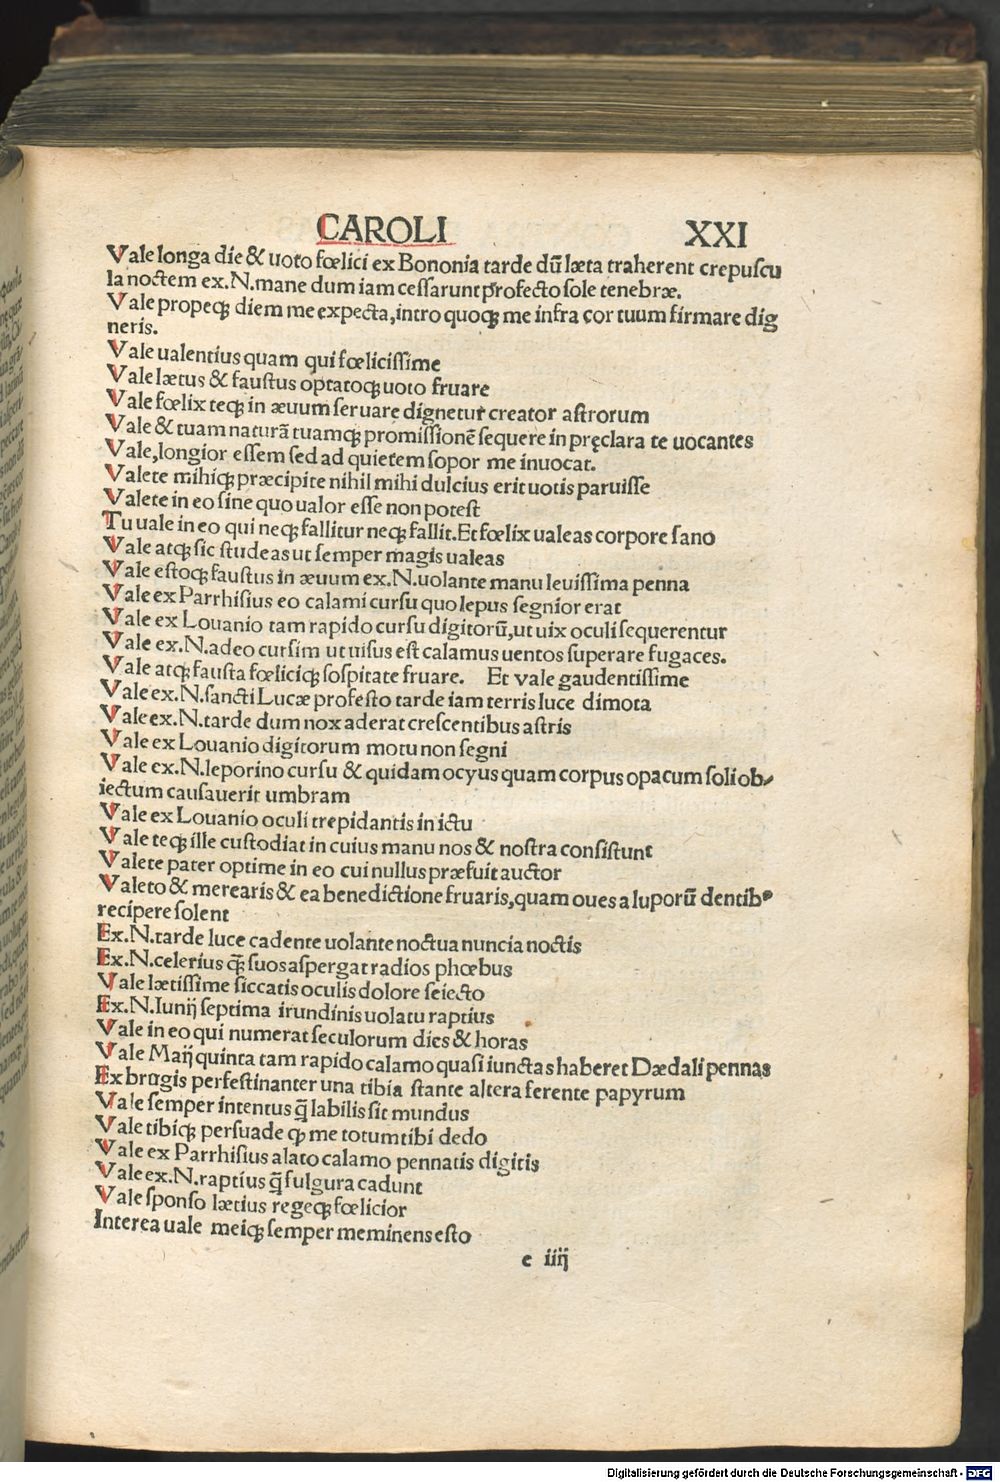 CAROLI XXI
Vale longa die & uoto fœlici ex Bononia tarde dū læta traherent crepuscu
la noctem ex.N.mane dum iam cessarunt profecto sole tenebræ.
Vale propeqꝫ diem me expecta,intro quoqꝫ me infra cor tuum firmare dig
neris.
Vale ualentius quam qui fœlicissime
Vale lætus & faustus optatoqꝫ uoto fruare
Vale fœlix teqꝫ in æuum seruare dignetur creator astrorum
Vale & tuam naturā tuamqꝫ promissionē sequere in pręclara te uocantes
Vale,longior essem sed ad quietem sopor me inuocat.
Valete mihiqꝫ præcipite nihil mihi dulcius erit uotis paruisse
Valete in eo sine quo ualor esse non potest
Tu uale in eo qui neqꝫ fallitur neqꝫ fallit.Et fœlix ualeas corpore sano
Vale atqꝫ sic studeas ut semper magis ualeas
Vale estoqꝫ faustus in æuum ex.N.uolante manu leuissima penna
Vale ex Parrhisius eo calami cursu quo lepus segnior erat
Vale ex Louanio tam rapido cursu digitorū,ut uix oculi sequerentur
Vale ex.N.adeo cursim ut uisus est calamus uentos superare fugaces.
Vale atqꝫ fausta fœliciqꝫ sospitate fruare. Et vale gaudentissime
Vale ex.N.sancti Lucæ profesto tarde iam terris luce dimota
Vale ex.N.tarde dum nox aderat crescentibus astris
Vale ex Louanio digitorum motu non segni
Vale ex.N.leporino cursu & quidam ocyus quam corpus opacum soli ob-
iectum causauerit umbram
Vale ex Louanio oculi trepidantis in ictu
Vale teqꝫ ille custodiat in cuius manu nos & nostra consistunt
Valete pater optime in eo cui nullus præfuit auctor
Valeto & merearis & ea benedictione fruaris,quam oues a luporū dentibꝰ
recipere solent
Ex.N.tarde luce cadente uolante noctua nuncia noctis
Ex.N.celerius qꝫ̄ suos aspergat radios phœbus
Vale lætissime siccatis oculis dolore seiecto
Ex.N.Iunij septima irundinis uolatu raptius
Vale in eo qui numerat seculorum dies & horas
Vale Maij quinta tam rapido calamo quasi iunctas haberet Dædali pennas
Ex brugis perfestinanter una tibia stante altera ferente papyrum
Vale semper intentus q̄ labilis sit mundus
Vale tibiqꝫ persuade qꝫ me totum tibi dedo
Vale ex Parrhisius alato calamo pennatis digitis
Vale ex.N.raptius q̄ fulgura cadunt
Vale sponso lætius regeqꝫ fœlicior
Interea uale meiqꝫ semper meminens esto
e iiij
Digitalisierung gefördert durch die Deutsche Forschungsgemeinschaft - DFG